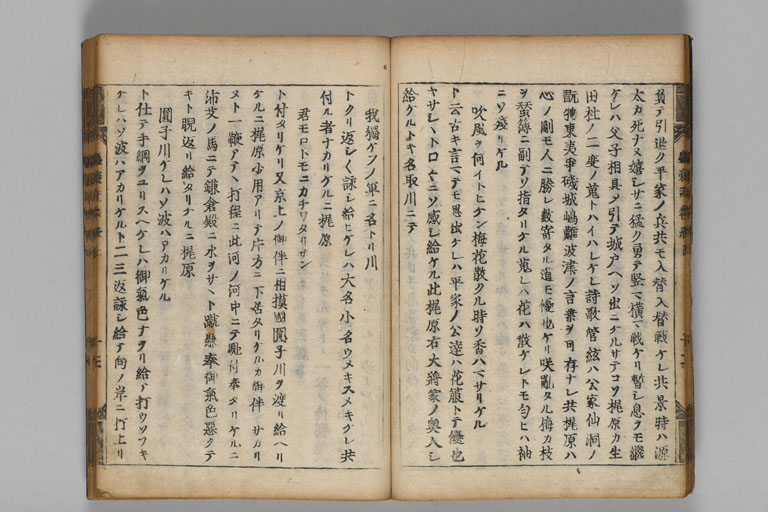 負テ引退ク平家ノ兵共モ入替入替戦ケレ共景時ハ源
太カ死ナヌ嬉シサニ猛ク勇テ竪ニ横ニ戦ケリ暫シ息ヲモ継
ケレハ父子相具メ引テ城戸ヘソ出ニケルサテコソ梶原カ生
田杜ノ二度ノ蒐トハイハレケレ詩歌管絃ハ公家仙洞ノ
翫物東夷争磯城嶋難波津ノ言葉ヲ可存ナレ共梶原ハ
心ノ剛モ人ニ勝レ数寄タル道モ優也ケリ咲乱タル梅カ枝
ヲ蚕簿ニ副テソ指タリケル蒐レハ花ハ散ケレトモ匂ヒハ袖
ニソ残リケル
吹風ヲ何イトヒケン梅花散クル時ソ香ハマサリケル
ト云古キ言マテモ思出ケレハ平家ノ公達ハ花箙トテ優也
ヤサシヽトロ々ニソ感シ給ケル此梶原右大将家ノ奥入シ
給ケルトキ名取川ニテ
我獨ケフノ軍ニ名トリ川
トクリ返シ〱詠シ給ヒケレハ大名小名ウメキスメキケレ共
付ル者ナカリケルニ梶原
君モロトモニカチワタリセン
ト付タリケリ又京上ノ御伴ニ相摸國圓子川ヲ渡リ給ヘリ
ケルニ梶原少用アリテ片方ニ下居タリケルカ御伴ニサカリ
ヌト一鞭アテヽ打程ニ此河ノ河中ニテ馳付奉タリケルニ
沛艾ノ馬ニテ鎌倉殿ニ水ヲサヽト蹴懸奉御氣色悪クテ
キト睨返リ給タリケルニ梶原
圓子川ケレハソ波ハアカリケル
ト仕テ手綱ヲユリスヘケレハ御氣色ナヲリ給テ打ウソフキ
ケレハソ波ハアカリケルト二三返詠シ給テ向ノ岸ニ打上リ